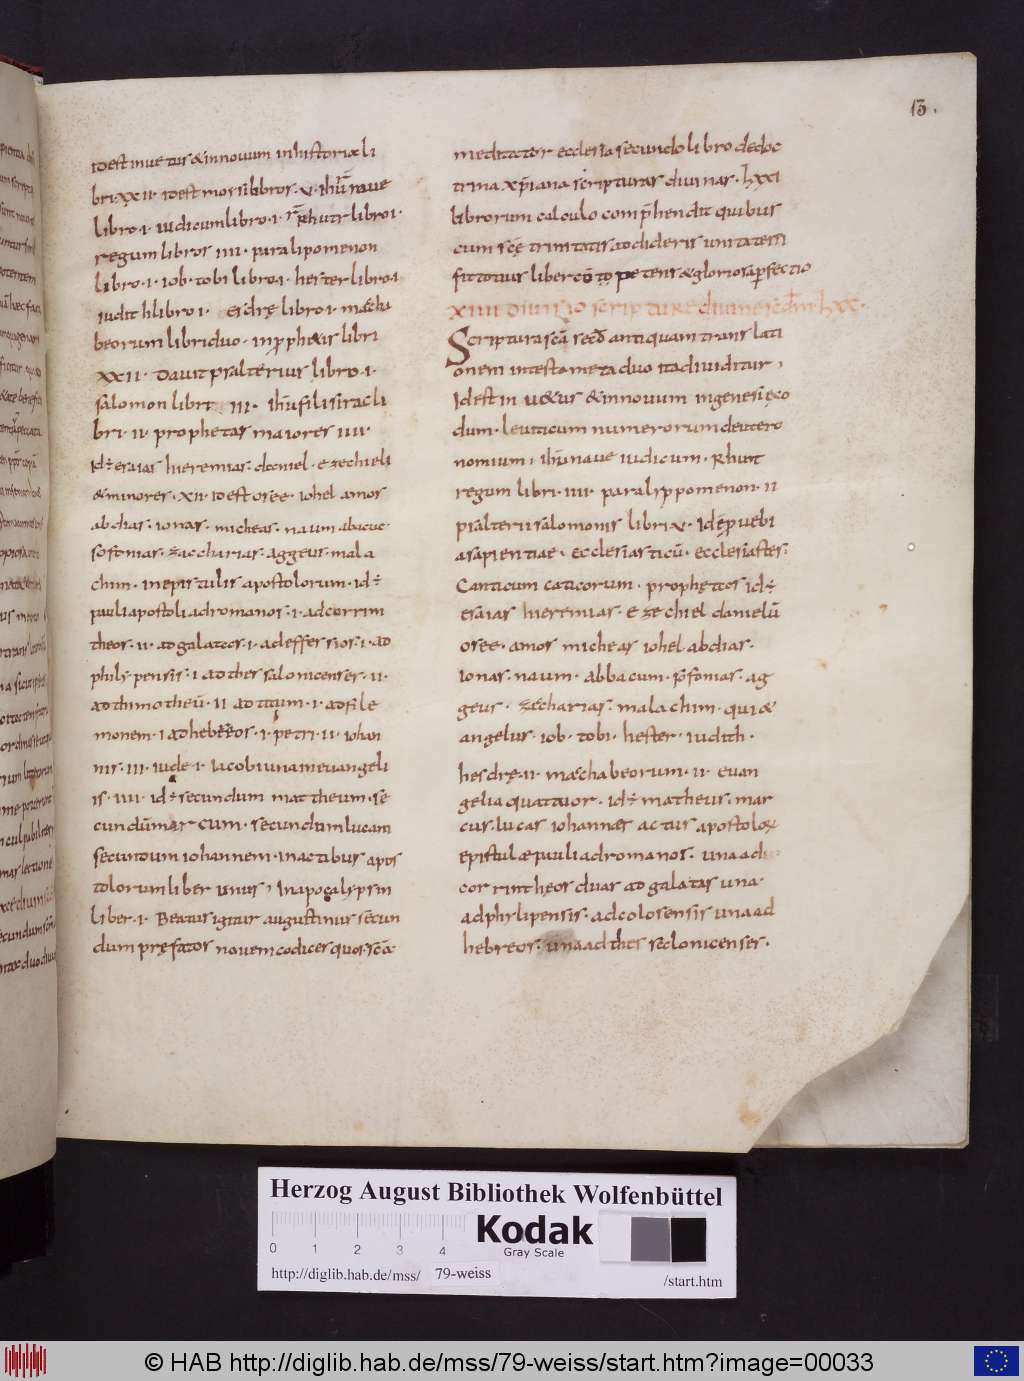 15.
id est in uetus & in nouum in historiæ li
bri. xxii. id est mosi libros. v. ihū naue
libro. i. iudicum libro. i. rhutr libro i.
regum libros iiii. paralipomenon
libro. i. iob. tobi libro. i. hester libro. i
iudith libro i. esdrę libro. i. machu
beorum libri duo. in pph&is libri
xxii. dauit psalterius libro. i.
salomon libri iii. ihū fili sirac li
bri. ii. prophetas maiores iiii.
id÷ esaias hieremias. daniel. ezechieli
& minores. xii. id est osee. iohel amos
abdias. ionas. micheas. naum abacuc.
sofonias. zaccharias. aggeus. mala
chim. in epistulis apostolorum. id÷
pauli apostoli ad romanos. i. ad corrin
theos. ii. ad galatos. i. ad effessios. i. ad
phily pensis. i ad thessalonicenses. ii.
ad thimotheū. ii ad titum. i. ad file
monem. i ad hebreos. i. petri. ii. iohan
nis. iii. iude. i. iacobi una in euangeli
is. iiii. id÷ secundum mattheum. se
cundū marcum. secundum lucam
secundum iohannem. in actibus apos
tolorum liber unus, in apocalypsin
liber. i. Beatus igitur augustinus secun
dum pręfatos nouem codices quos scā
meditatur ecclesia secundo libro de doc
trina xp̄iana scripturas diuinas. lxxi
librorum calculo comp̄hendit quibus
cum scę trinitatis addideris unitatem
fit totius liber cō petens & gloriosa pfectio
xiiii diuisio scripture diuine scdm lxx.
Scriptura scā secd antiquam translati
onem in testamenta duo ita diuiditur,
Id est in u&us & in nouum in genesi exo
dum. leuticum numerorum deutero
nomium, ihū naue iudicum. Rhut
regum libri. iiii. paralyppomenon. ii
psalterii salomonis libri v. id ē puerbi
a sapientiae. ecclesiasticū. ecclesiastes.
Canticum caticorum. prophetas id÷
esaias hieremias. ezechiel danielū
osee. amos micheas iohel abdias.
ionas. naum. abbacum. sofonias. ag
geus. zacharias. malachim. qui &
angelus. iob. tobi. hester. iudith.
hesdrę. ii. machabeorum. ii. euan
gelia quattuor. id÷ matheus. mar
cus. lucas iohannes actus apostolo
epistulæ pauli ad romanos. una ad
corrintheos duas ad galatas una.
ad phylipensis. ad colosensis una ad
hebreos. una ad thessalonicenses.
Herzog August Bibliothek Wolfenbüttel
0 1 2 3 4
Kodak
Gray Scale
http://diglib.hab.de/mss/ 79-weiss /start.htm
© HAB http://diglib.hab.de/mss/79-weiss/start.htm?image=00033